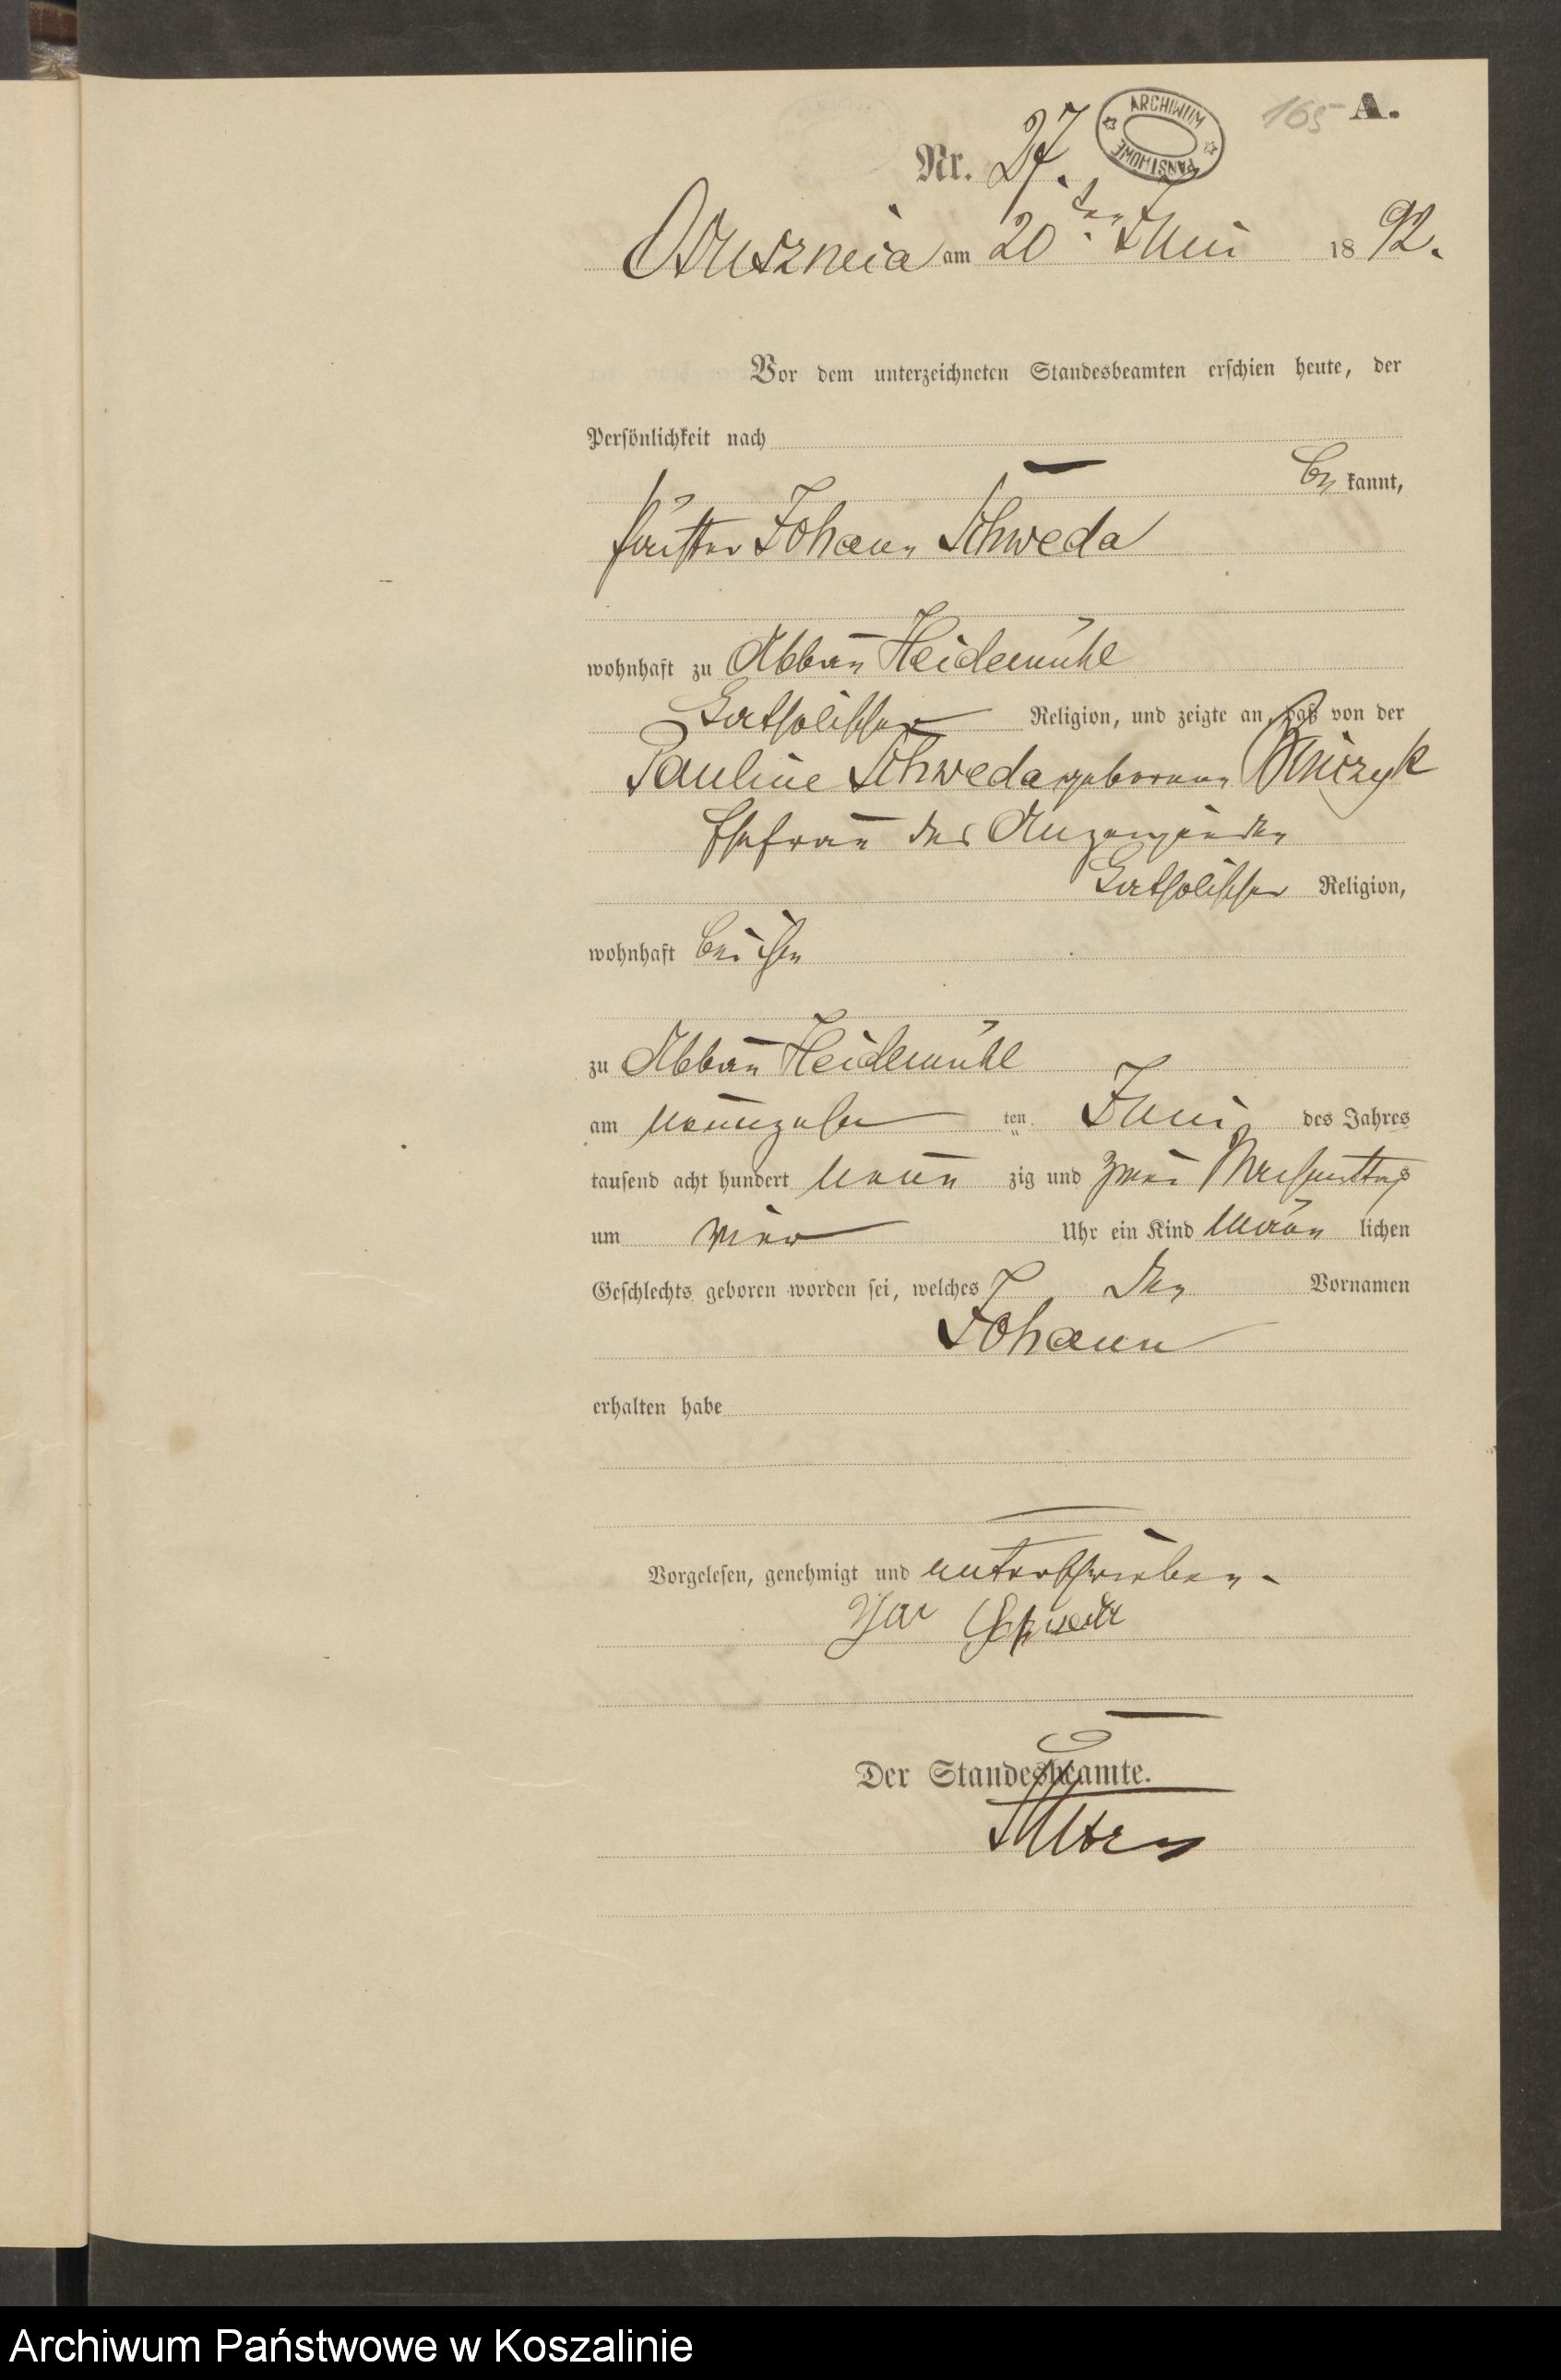 165 A.
ARCHIWUM PAŃSTWOWE
Nr. 27.
Osuszneia am 20ten Juni 1892.
Vor dem unterzeichneten Standesbeamten erschien heute, der
Persönlichkeit nach
be kannt,
Johann Schweda
wohnhaft zu Abbau Heidemühl
katholischer Religion, und zeigte an, daß von der
Pauline Schweda geborenen
Ehefrau des Anzeigenden
katholischer Religion,
wohnhaft bei ihm
zu Abbau Heidemühl
am neunzehn ten Juni des Jahres
tausend acht hundert neun zig und zwei Nachmittags
um vier Uhr ein Kind männ lichen
Geschlechts geboren worden sei, welches den Vornamen
Johann
erhalten habe
Vorgelesen, genehmigt und unterschrieben.
Schweda
Der Standesbeamte.
Archiwum Państwowe w Koszalinie